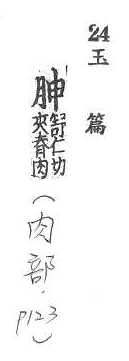 24
玉篇
胂舒仁切
夾脊肉
(肉部.P123)